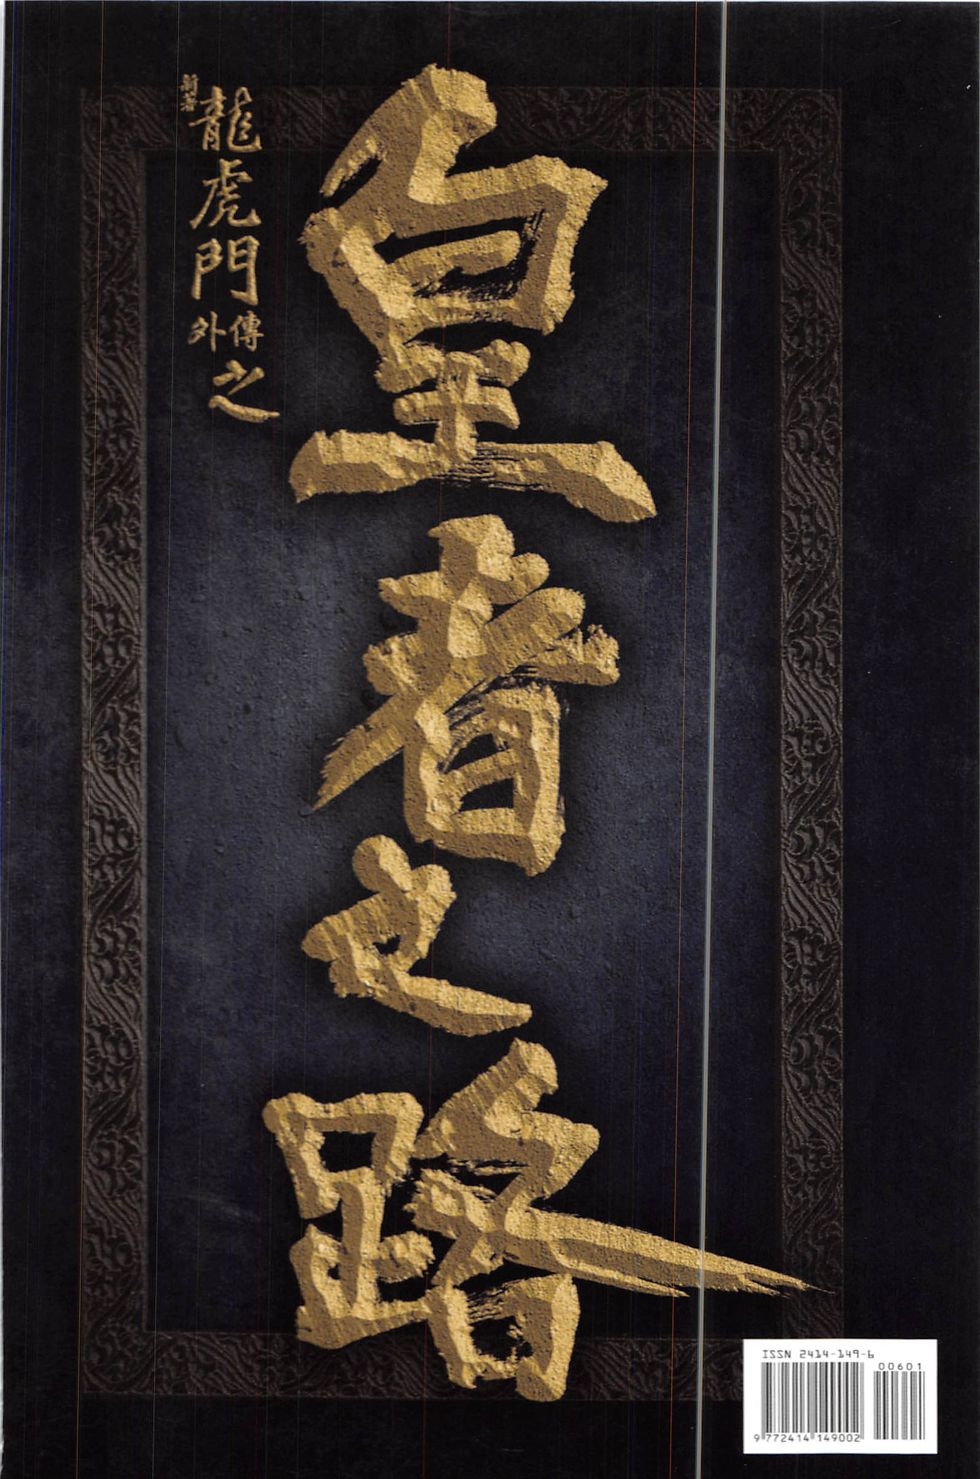 新著
龍虎門
外傳
之
皇者之路
ISSN 2414-149-6
00601
9 772414 149002